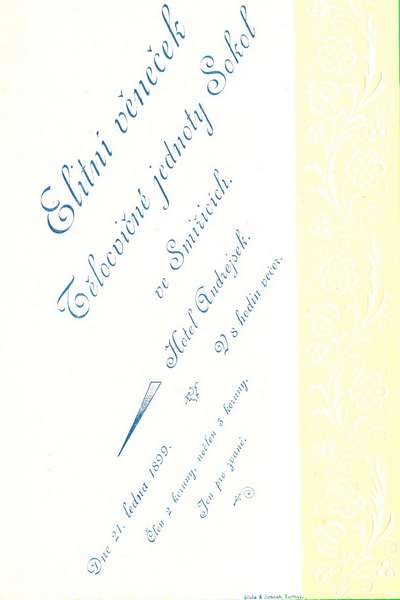 Elitní věneček
Tělocvičné jednoty Sokol
ve Smiřicích.
Hotel Andrejsek.
V 8 hodin večer.
Dne 21. ledna 1899.
Člen 2 koruny, nečlen 3 koruny.
Jen pro zvané.